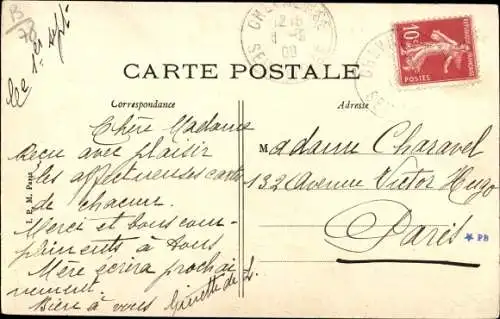 B/78
le 1er sept.
CHEVREUSE
12 15
10c
POSTES
CARTE POSTALE
Correspondance
Adresse
Chère Madame
Reçu avec plaisir
les affectueuses cartes
de chacun.
Merci et bons com-
pliments à tous
Mère écrira prochai
nement.
Bien à vous Ginette de L.
Madame Charavel
132 Avenue Victor Hugo
Paris
* PB
I. P. M. Paris